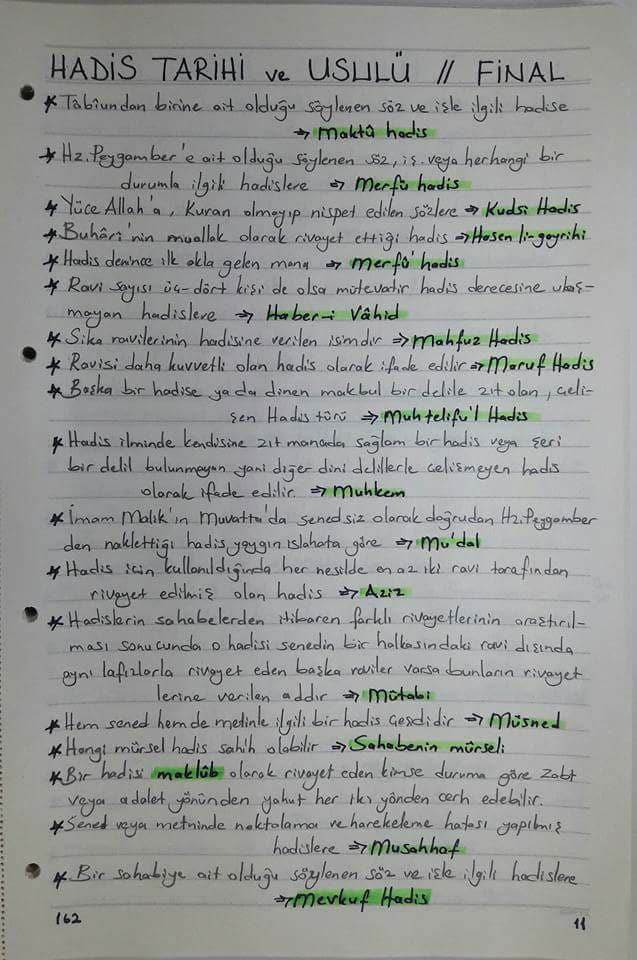 HADİS TARİHİ ve USULÜ // FİNAL
* Tâbiundan birine ait olduğu söylenen söz ve işle ilgili hadise
⇒ Maktû hadis
* Hz. Peygamber'e ait olduğu söylenen söz, iş veya herhangi bir
durumla ilgili hadislere ⇒ Merfû hadis
* Yüce Allah'a, Kuran olmayıp nispet edilen sözlere ⇒ Kudsi Hadis
* Buhâri'nin muallak olarak rivayet ettiği hadis ⇒ Hasen li-gayrihi
* Hadis denince ilk akla gelen mana ⇒ Merfû' hadis
* Ravi sayısı üç-dört kişi de olsa mütevatir hadis derecesine ulaş-
mayan hadislere ⇒ Haber-i Vâhid
* Sika ravilerinin hadisine verilen isimdir ⇒ Mahfuz Hadis
* Ravisi daha kuvvetli olan hadis olarak ifade edilir ⇒ Maruf Hadis
* Başka bir hadise ya da dinen makbul bir delile zıt olan, çeli-
şen Hadis türü ⇒ Muhtelifu'l Hadis
* Hadis ilminde kendisine zıt manada sağlam bir hadis veya şeri
bir delil bulunmayan yani diğer dini delillerle çelişmeyen hadis
olarak ifade edilir. ⇒ Muhkem
* İmam Malik'in Muvatta'da senedsiz olarak doğrudan Hz. Peygamber
den naklettiği hadis yaygın ıslahata göre ⇒ Mu'dal
* Hadis için kullanıldığında her nesilde en az iki ravi tarafından
rivayet edilmiş olan hadis ⇒ Aziz
* Hadislerin sahabelerden itibaren farklı rivayetlerinin araştırıl-
ması sonucunda o hadisi senedin bir halkasındaki ravi dışında
aynı lafızlarla rivayet eden başka raviler varsa bunların rivayet
lerine verilen addır ⇒ Mütabi
* Hem sened hem de metinle ilgili bir hadis çeşdidir ⇒ Müsned
* Hangi mürsel hadis sahih olabilir ⇒ Sahabenin mürseli
* Bir hadisi maklûb olarak rivayet eden kimse duruma göre zabt
veya adalet yönünden yahut her iki yönden cerh edebilir.
* Sened veya metninde noktalama ve harekeleme hatası yapılmış
hadislere ⇒ Musahhaf
* Bir sahabiye ait olduğu söylenen söz ve işle ilgili hadislere
⇒ Mevkuf Hadis
162
11